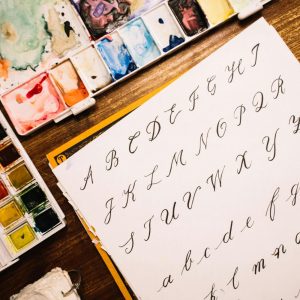 A B C D E F G H I
J K L M N O P Q R
S T U V W X Y Z
a b c d e f g
k l m n o